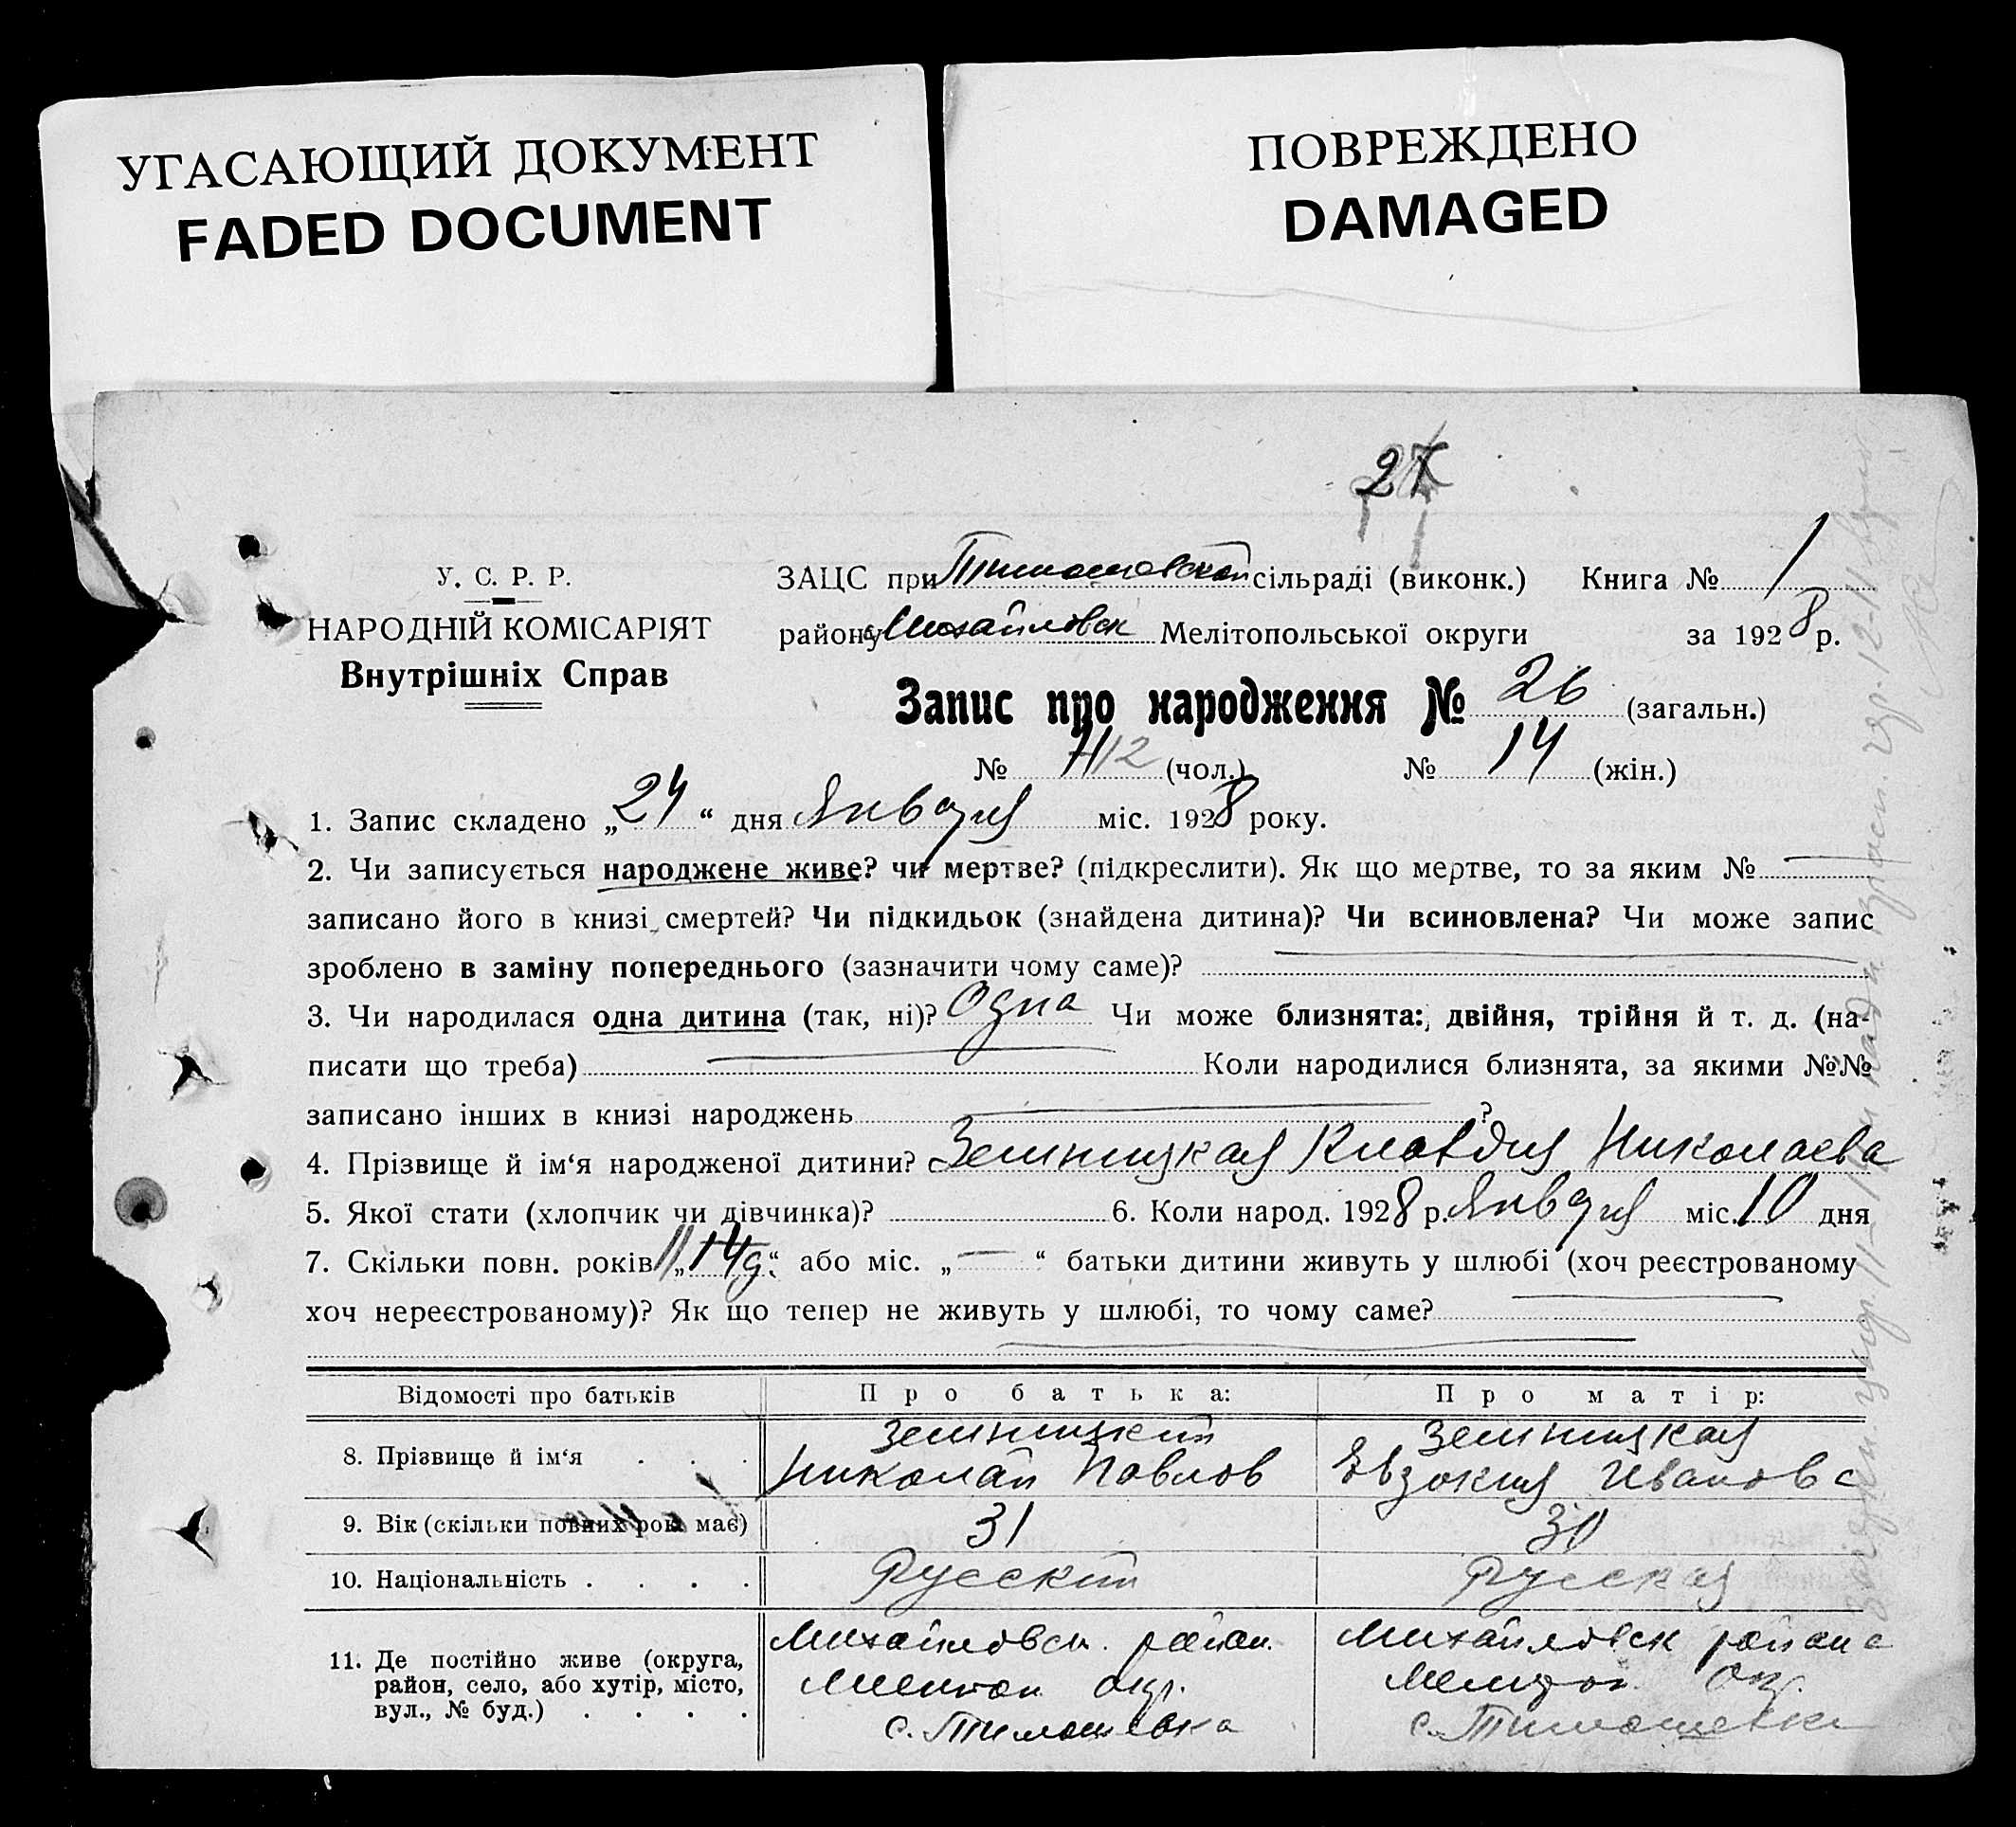 УГАСАЮЩИЙ ДОКУМЕНТ
FADED DOCUMENT
ПОВРЕЖДЕНО
DAMAGED
27
У. С. Р. Р.
НАРОДНІЙ КОМІСАРІЯТ
Внутрішніх Справ
ЗАЦС при Тимошовской сільраді (виконк.) Книга № 1
району Михайловск Мелітопольської округи за 1928 р.
Запис про народження № 26 (загальн.)
№ 12 (чол.) № 14 (жін.)
1. Запис складено „24“ дня Января міс. 1928 року.
2. Чи записується народжене живе? чи мертве? (підкреслити). Як що мертве, то за яким №
записано його в книзі смертей? Чи підкидьок (знайдена дитина)? Чи всиновлена? Чи може запис
зроблено в заміну попереднього (зазначити чому саме)?
3. Чи народилася одна дитина (так, ні)? Одна Чи може близнята: двійня, трійня й т. д. (на-
писати що треба) Коли народилися близнята, за якими №№
записано інших в книзі народжень ?
4. Прізвище й ім‘я народженої дитини? Земницкая Клавдия Николаева
5. Якої стати (хлопчик чи дівчинка)? 6. Коли народ. 1928 р. Января міс. 10 дня
7. Скільки повн. років „14 г“ або міс. „—“ батьки дитини живуть у шлюбі (хоч реєстрованому
хоч нереєстрованому)? Як що тепер не живуть у шлюбі, то чому саме?
Відомості про батьків Про батька: Про матір:
8. Прізвище й ім‘я . . . Земницкий Николай Павлов Земницкая Евдокия Иванова
9. Вік (скільки повних рокі має) 31 30
10. Національність . . . . Русский Русская
11. Де постійно живе (округа, район, село, або хутір, місто, вул., № буд.) . . . .
Михайловск. район. Мелитоп окр. с. Тимошевка
Михайловск района Мелитоп. Окр. с. Тимошевка